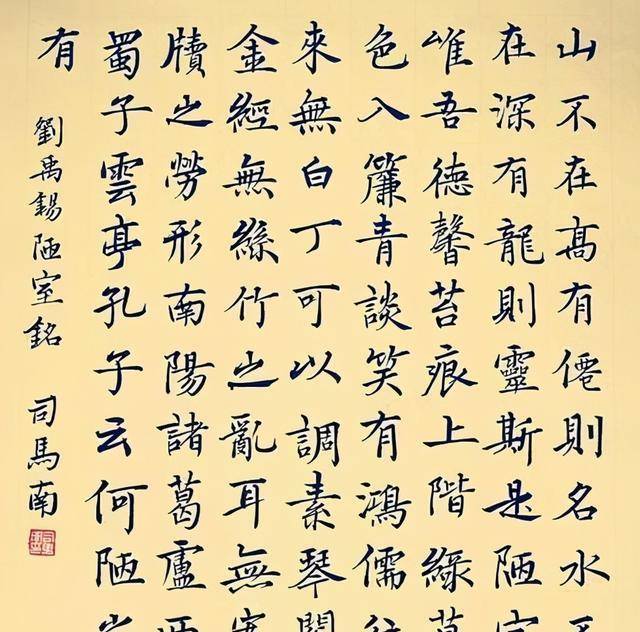 山不在髙有僊則名水
在深有龍則靈斯是陋
唯吾德馨苔痕上階綠
色入簾青談笑有鴻儒
來無白丁可以調素琴
金經無絲竹之亂耳無
牘之勞形南陽諸葛廬
蜀子雲亭孔子云何陋
有
劉禹錫陋室銘 司馬南